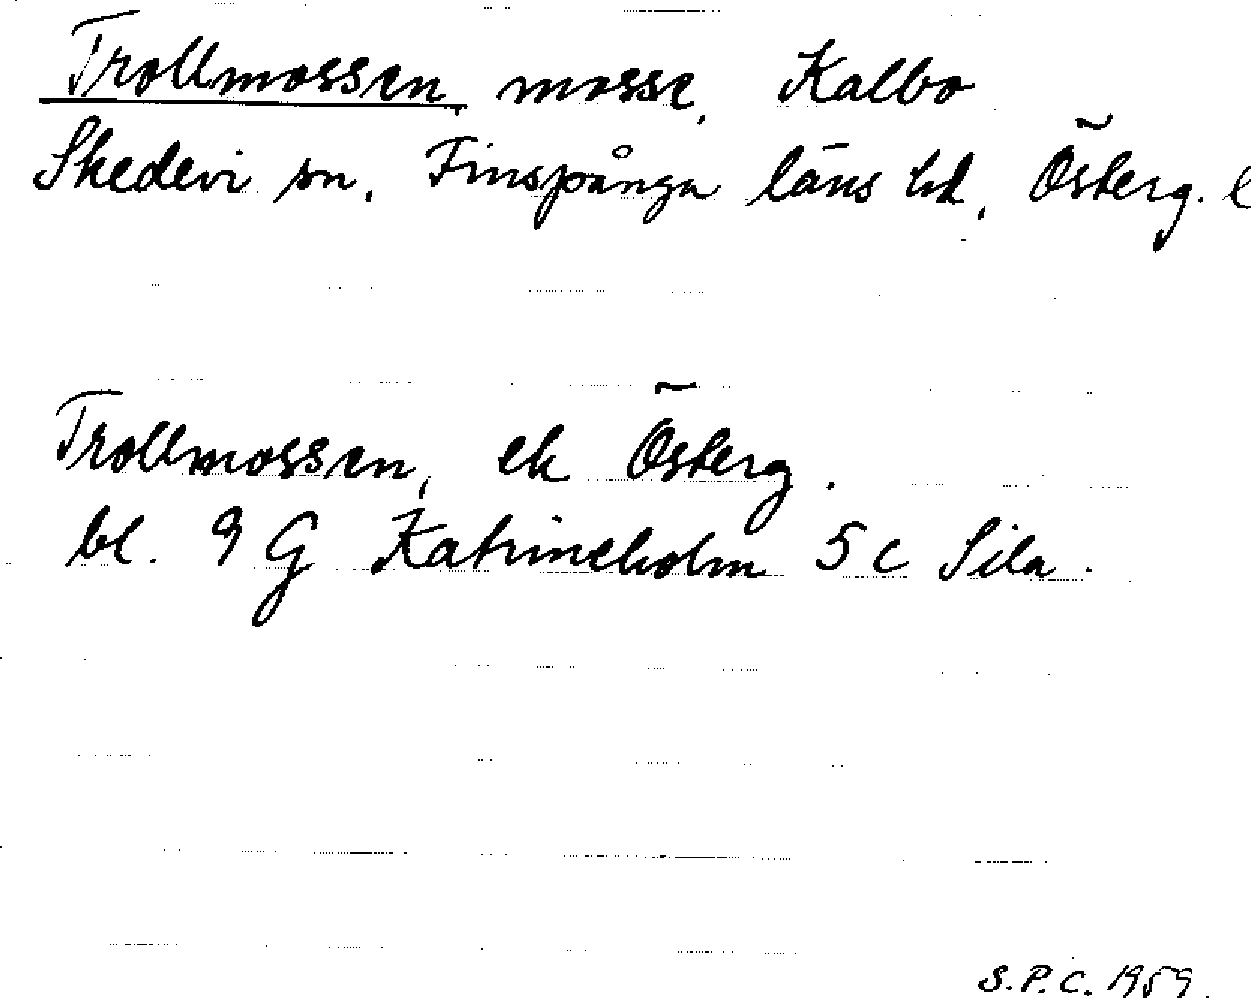 Trollmossen, mosse, Kalbo
Skedevi sn. Finspånga läns hd, Österg. l
Trollmossen, ek Österg.
bl. 9 G Katrineholm 5 c Sila.
S.P.C. 1959.